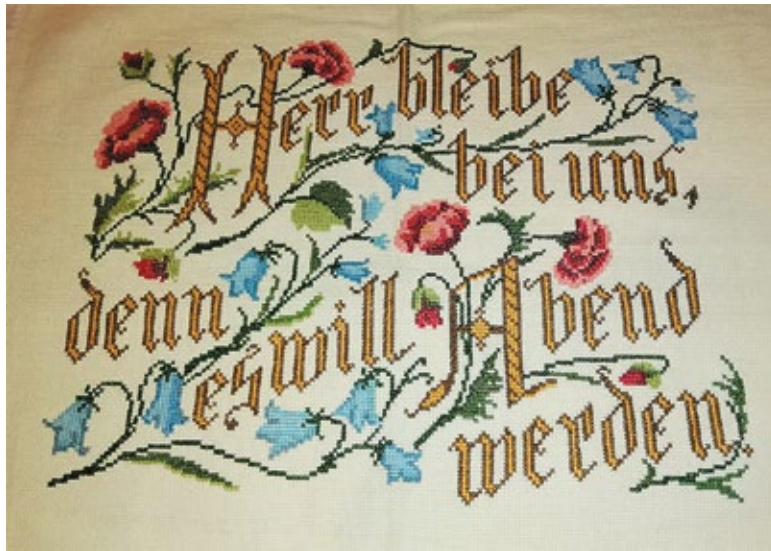 Herr bleibe
bei uns,
denn
es will Abend
werden.